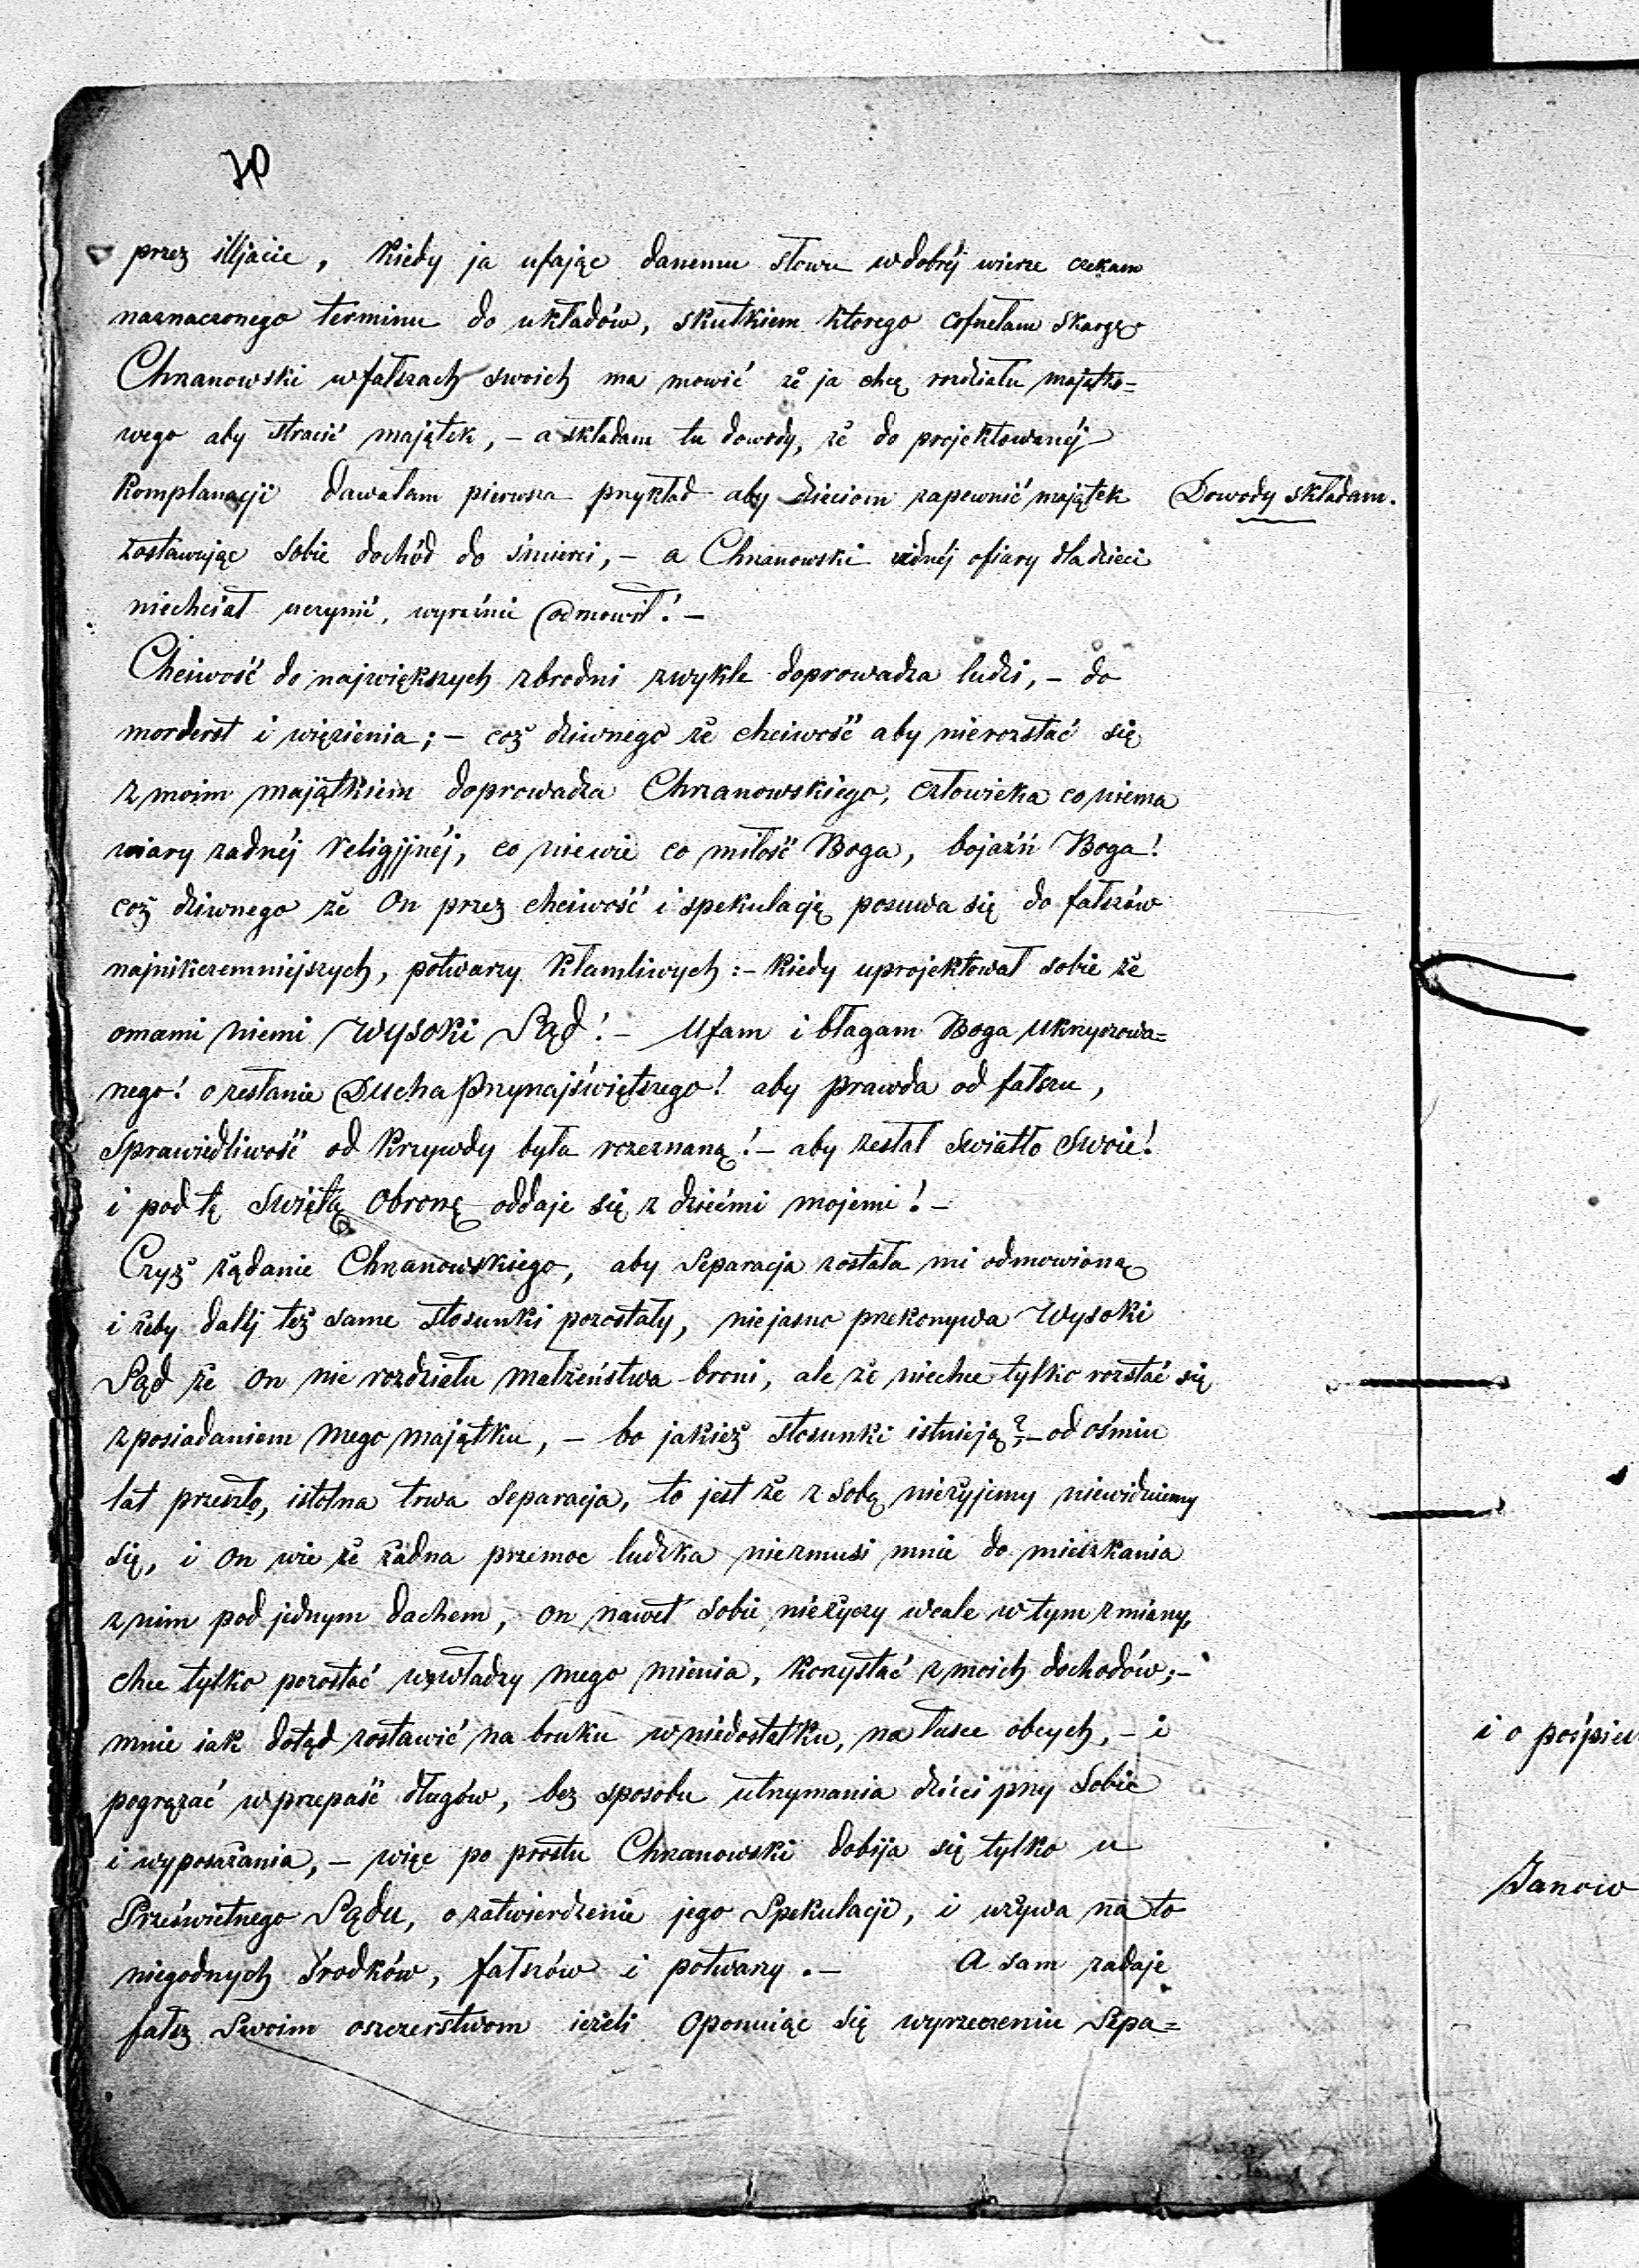 70
przez illjacie, kiedy ja ufając danemu słowu w dobrej wierze czekam
naznaczonego terminu do układów, skutkiem ktorego cofnełam skargę
Chrzanowski w fałszach swoich ma mowić że ja chcę rozdziału majątko=
wego aby stracić majątek, – a składam tu dowody, że do projektowanéj
Komplanacji dawałam pierwsza przykład aby dzieciom zapewnić majątek
Dowody składam.
zostawując sobie dochód do śmierci, – a Chrzanowski żadnéj ofiary dla dzieci
niechciał uczynić, wyraźnie odmowił! –
Chciwość do największych zbrodni zwykle doprowadza ludzi, – do
morderst i więzienia; – coż dziwnego że chciwość aby nierozstać się
z moim majątkiem doprowadza Chrzanowskiego, człowieka co niema
wiary żadnéj religijnéj, co niewie co miłość Boga, bojaźń Boga!
coż dziwnego że On przez chciwość i spekulację posuwa się do fałszów
najnikczemniejszych, potwarzy kłamliwych: – kiedy uprojektował sobie że
omami niemi Wysoki Sąd! – Ufam i błagam Boga Ukrzyżowa=
nego! o zesłanie Ducha Przynajświętszego! aby prawda od fałszu,
Sprawiedliwość od Krzywdy była rozeznaną! – aby zesłał Swiatło Swoie!
i pod tę Swiętą Obronę oddaje się z dziećmi mojemi! –
Czyż żądanie Chrzanowskiego, aby Separacja została mi odmowioną
i żeby daléj też same stosunki pozostały, niejasno przekonywa Wysoki
Sąd że on nie rozdziału małżeństwa broni, ale że niechce tylko rozstać się
z posiadaniem mego majątku, – bo jakież stosunki istnieją? – od ośmiu
lat przeszło, istotna trwa Separacja, to jest że z sobą nieżyjemy niewidziemy
się, i on wie że żadna przemoc ludzka niezmusi mnie do mieszkania
z nim pod jednym dachem, on nawet sobie nieżyczy wcale w tym zmiany,
chce tylko pozostać w władzy mego mienia, korzystać z moich dochodów; –
mnie iak dotąd zostawić na bruku w niedostatku, na łasce obcych, – i
pogrążać w przepaść długów, bez sposobu utrzymania dzieci przy sobie
i wyposażania, – więc po prostu Chrzanowski dobija się tylko u
Prześwietnego Sądu, o zatwierdzenie jego Spekulacji, i używa na to
niegodnych środków, fałszów i potwarzy. – A sam zadaje
fałsz Swoim oszczerstwom ieżeli oponuiąc się wyrzeczeniu Sepa=
i o pośpiew
Janow